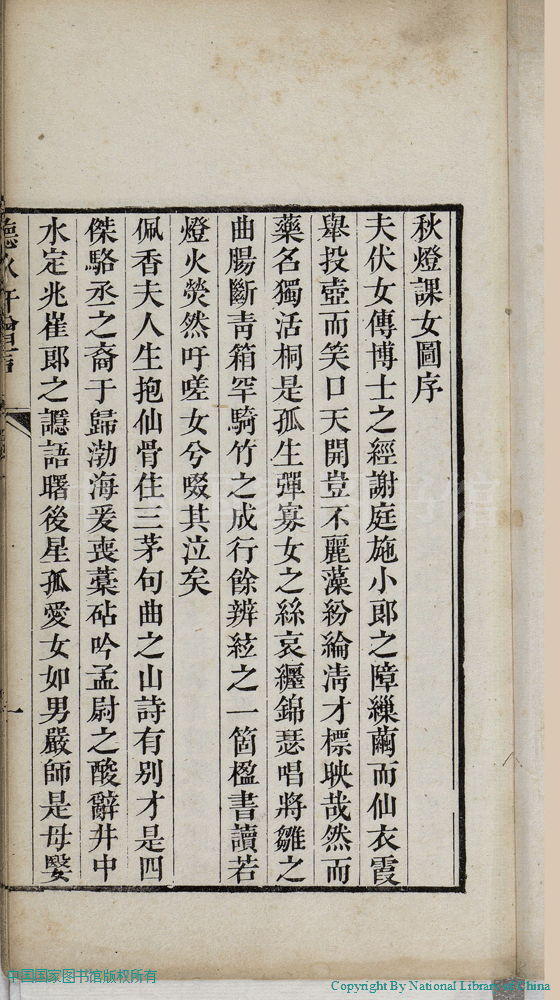 秋燈課女圖序
夫伏女傳博士之經謝庭施小郎之障繅繭而仙衣霞
舉投壺而笑口天開豈不麗藻紛綸淸才標映哉然而
藥名獨活桐是孤生彈寡女之絲哀纏錦瑟唱將雛之
曲腸斷靑箱罕騎竹之成行餘辨絃之一箇楹書讀若
燈火熒然吁嗟女兮啜其泣矣
佩香夫人生抱仙骨住三茅句曲之山詩有別才是四
傑駱丞之裔于歸渤海爰喪藁砧吟孟尉之酸辭井中
水定兆崔郎之讔語曙後星孤愛女如男嚴師是母嫛
一
中国国家图书馆版权所有
Copyright By National Library of China